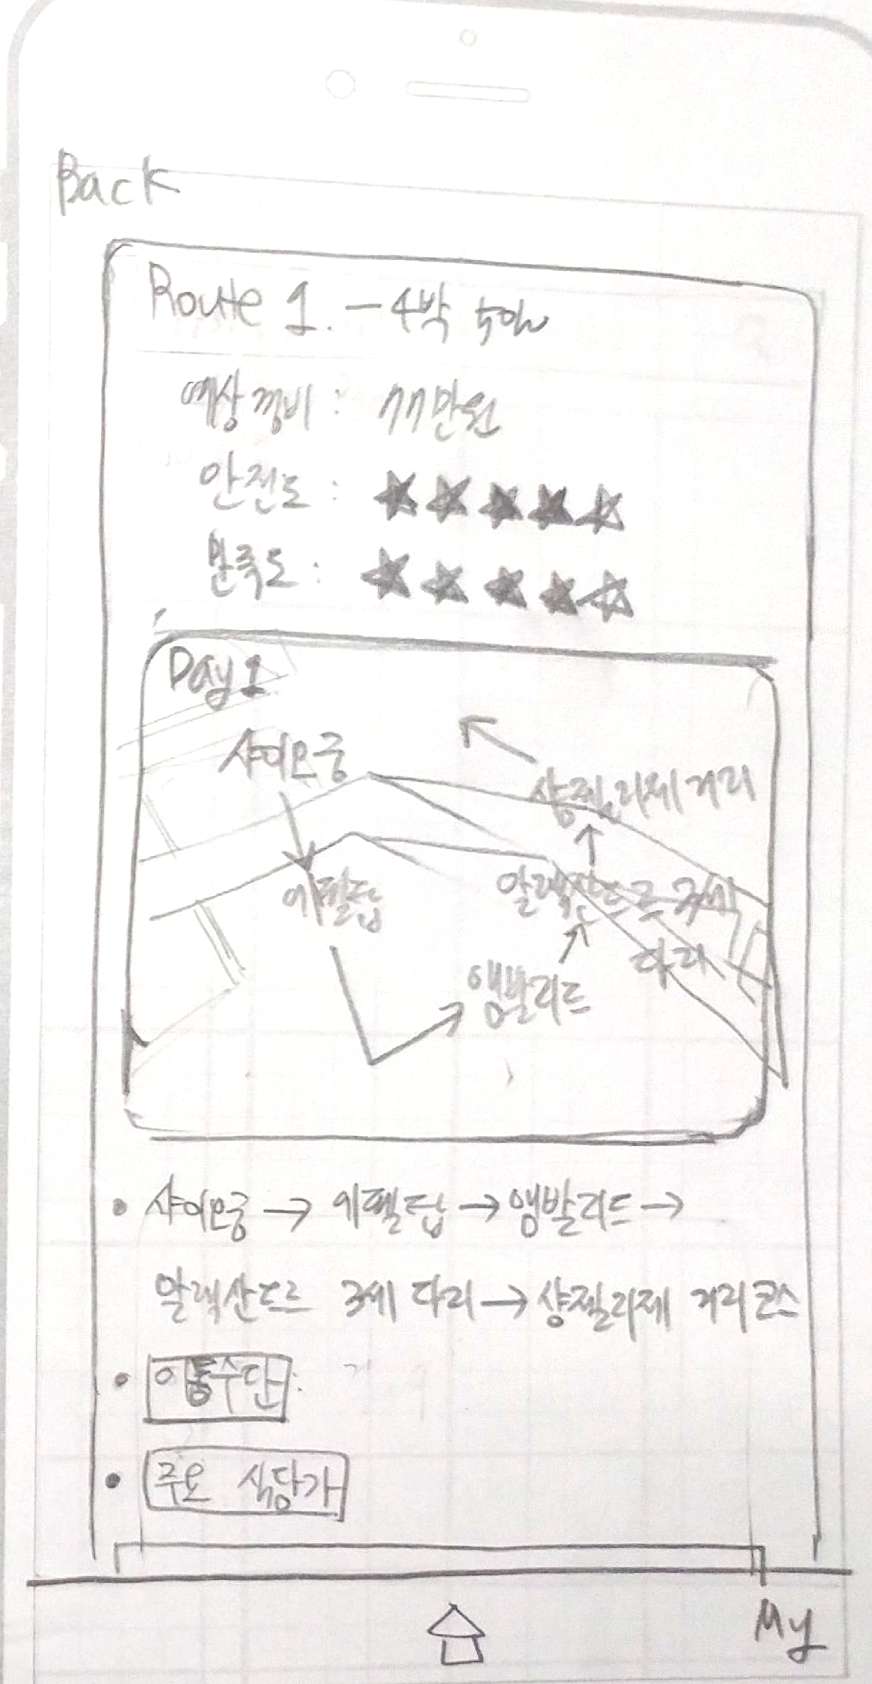 Back
Route 1. - 4박 5일
예상경비 : 77만원
안전도 : ★★★★☆
만족도 : ★★★★☆
Day 1
샤이오궁
샹젤리제 거리
에펠탑
알렉산드르 3세
다리
앵발리드
• 샤이오궁 → 에펠탑 → 앵발리드 →
알렉산드르 3세 다리 → 샹젤리제 거리 코스
• 이동수단 :
• 주요 식당가
My